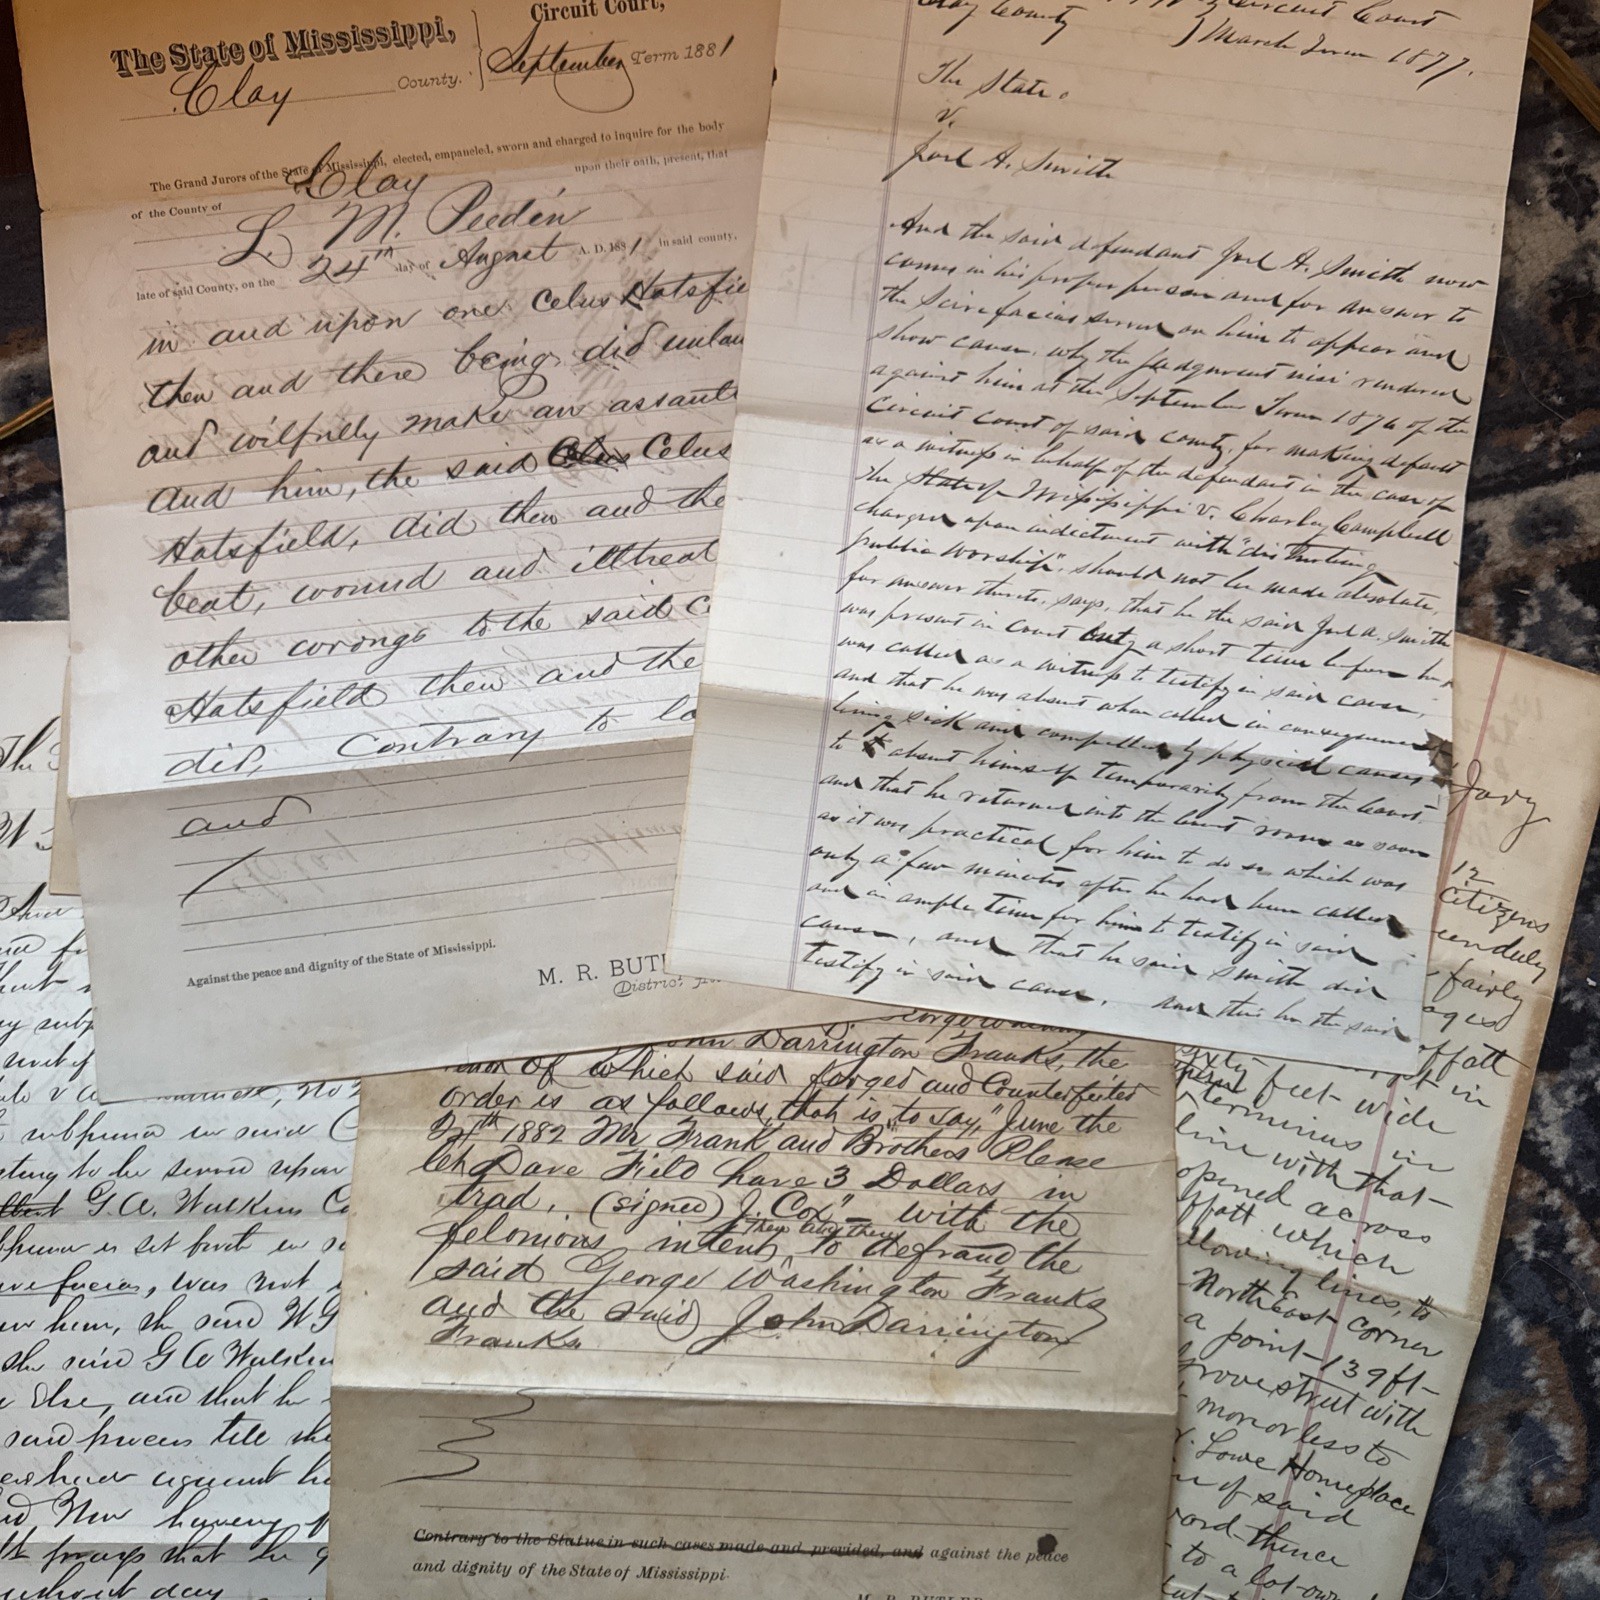 The State of Mississippi,
Clay County.
Circuit Court,
September Term 1881
The Grand Jurors of the State of Mississippi, elected, empaneled, sworn and charged to inquire for the body
of the County of Clay upon their oath, present, that
L. M. Peeden
late of said County, on the 24th day of August A. D. 1881 in said county,
in and upon one Celus Hatsfie
then and there being, did unlaw
and wilfully make an assault
and him, the said Celus Celus
Hatsfield, did then and the
beat, wound and illtreat
other wrongs to the said C
Hatsfield then and the
did, contrary to la
and
Against the peace and dignity of the State of Mississippi.
M. R. BUTL
District
Clay County
Circuit Court
March Term 1877.
The State
v.
Joel A. Smith
And the said defendant Joel A. Smith now
comes in his proper person and for answer to
the Scire facias served on him to appear and
show cause why the judgment nisi rendered
against him at the September Term 1876 of the
Circuit Court of said county, for making default
as a witness in behalf of the defendant in the case of
The State of Mississippi v. Charley Campbell
charged upon indictment with "disturbing
public worship", should not be made absolute,
for answer thereto, says, that he the said Joel A. Smith
was present in court but a short time before he
was called as a witness to testify in said cause,
and that he was absent when called in consequence of
being sick and compelled by physical causes
to absent himself temporarily from the court
and that he returned into the court room as soon
as it was practical for him to do so which was
only a few minutes after he had been called
and in ample time for him to testify in said
cause, and that he said Smith did
testify in said cause, and this he the said
John Darrington Franks, the
of which said forged and Counterfeited
order is as follows, that is, to say, "June the
24th 1882 Mr Frank and Brothers Please
let Dave Field have 3 Dollars in
trad, (signed) J. Cox" – with the
felonious intent, then and there to defraud the
said George Washington Franks
and the said John Darrington
Franks
Contrary to the Statue in such cases made and provided, and against the peace
and dignity of the State of Mississippi.
M. R. BUTLER
The
subpoena in said
ting to be served upon
G. A. Watkins
is set forth in
facias, was not
him, the said W G
the said G A Watkins
Else, and that he
said process till
against
Now having
prays that he
without day
Jory
12
Citizens
fairly
feet wide
terminus in
line with that
opened across
which
lines, to
Northeast corner
a point 139 ft
street with
more or less to
Lowe Homeplace
of said
thence
to a lot